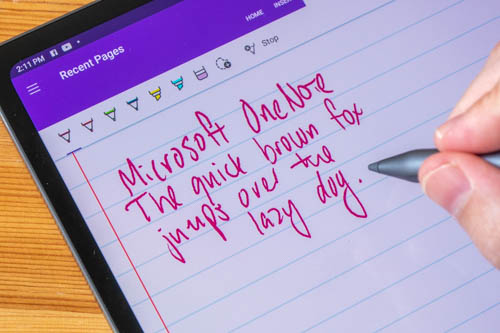 2:11 PM
HOME
Recent Pages
Stop
Microsoft OneNote
The quick brown fox
jumps over the
lazy dog.